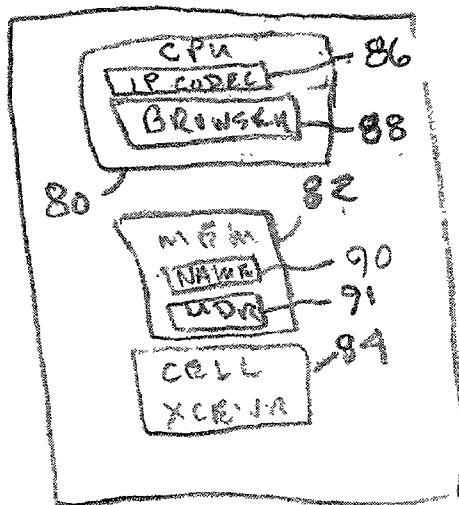 CPU
IP CODEC 86
BROWSER 88
80
82
MEM
NAME 90
UDR 91
84
CELL
XCEIVR